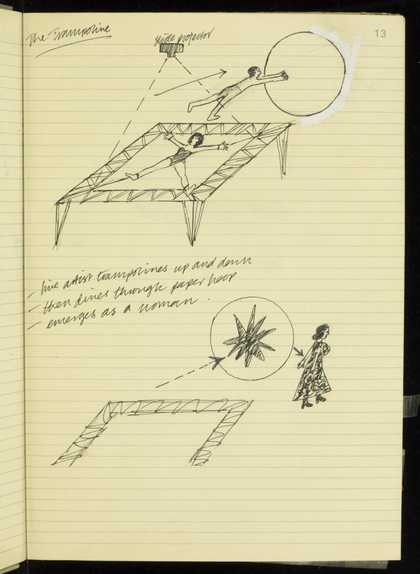 The Trampoline
slide projector
13
– live artist trampolines up and down
– then dives through paper hoop
– emerges as a woman.